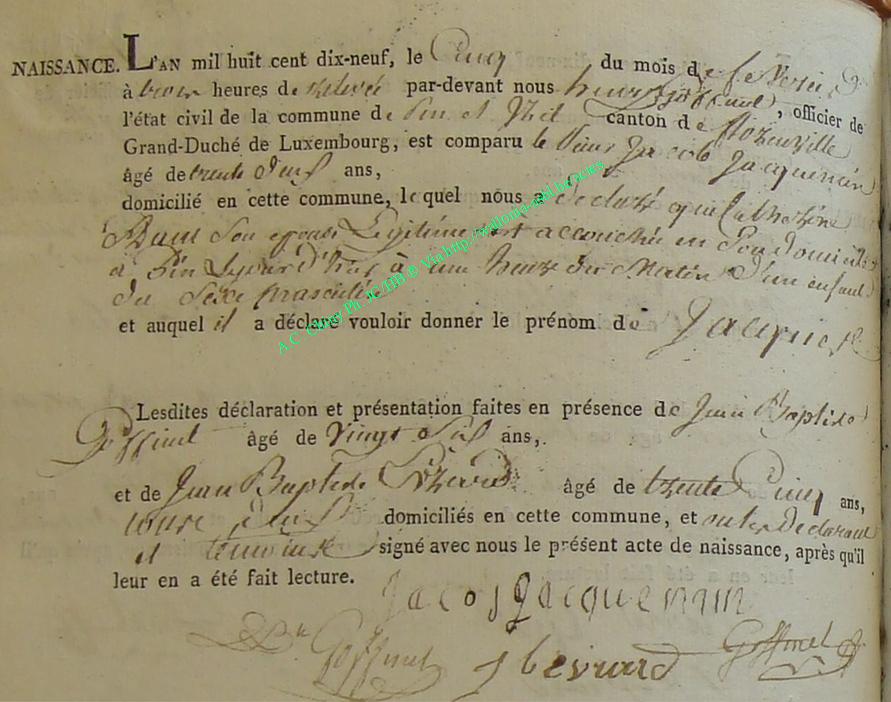 NAISSANCE. L'AN mil huit cent dix-neuf, le Cinq du mois de fevrier
à trois heures de relevée par-devant nous henry Goffinet, officier de
l'état civil de la commune de Pin et Izel canton de florenville
Grand-Duché de Luxembourg, est comparu le Sieur Jacob Jacquemin
âgé de trente deux ans,
domicilié en cette commune, lequel nous a declaré que Catherine
son epouse Legitime est accouchée en Son domicile
a Pin à une heure du Matin d'un enfant
du Sexe masculin
et auquel il a déclaré vouloir donner le prénom de Jacques
A.C. Chiny Ph JC/HB @ Via http://wallonia-asbl.be
Lesdites déclaration et présentation faites en présence de Jean Baptiste
Goffinet âgé de Vingt Six ans,
et de Jean Baptiste âgé de trente Cinq ans,
tous deux domiciliés en cette commune, et ont les declarant
et temoins signé avec nous le présent acte de naissance, après qu'il
leur en a été fait lecture.
Jacob Jacquemin
Goffinet Goffinet